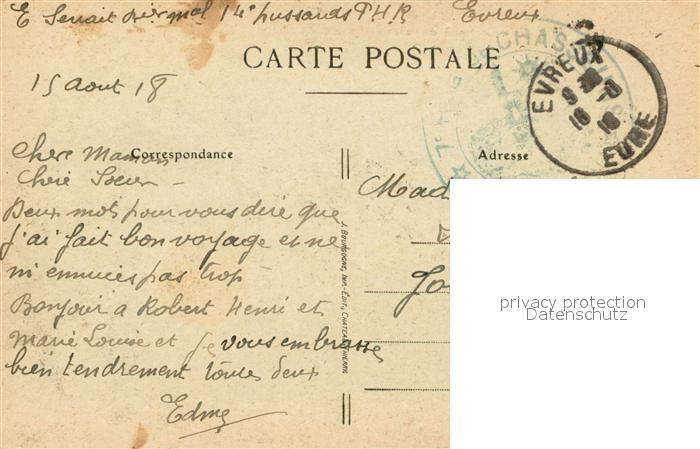 E Senait 14e hussards P.H.R Evreux
CARTE POSTALE
15 Aout 18
CHAS
EVREUX
EURE
Correspondance
Adresse
Chere Maman
Chère Soeur –
Deux mots pour vous dire que
j'ai fait bon voyage et ne
m'ennuies pas trop
Bonjour a Robert Henri et
Marie Louise et je vous embrasse
bien tendrement toutes deux
Edmg
J. BOURGOGNE, IMP.-EDIT., CHATEAU-THIERRY
Mad
privacy protection
Datenschutz